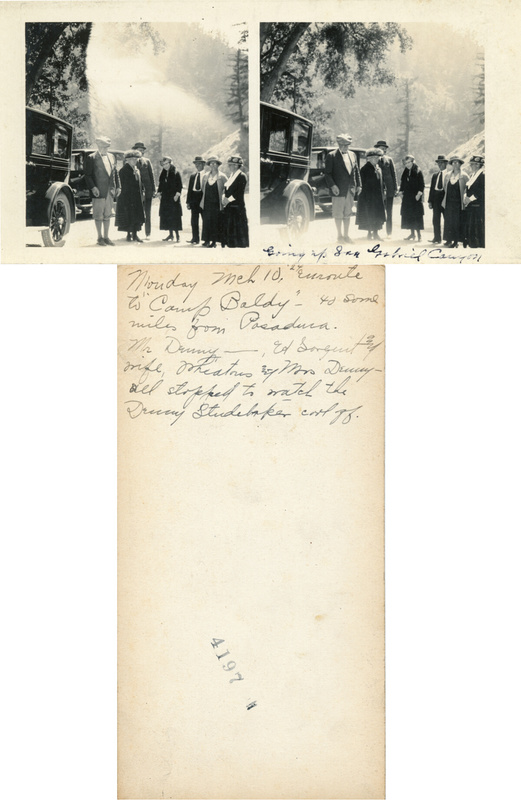 Going up San Gabriel Canyon
Monday Mch 10, 24 enroute
to "Camp Baldy" - 40 some
miles from Pasadena.
Mr Denny —, Ed Sargent &
wife, Wheatons & Mrs Denny -
all stopped to watch the
Denny Studebaker cool off.
4197